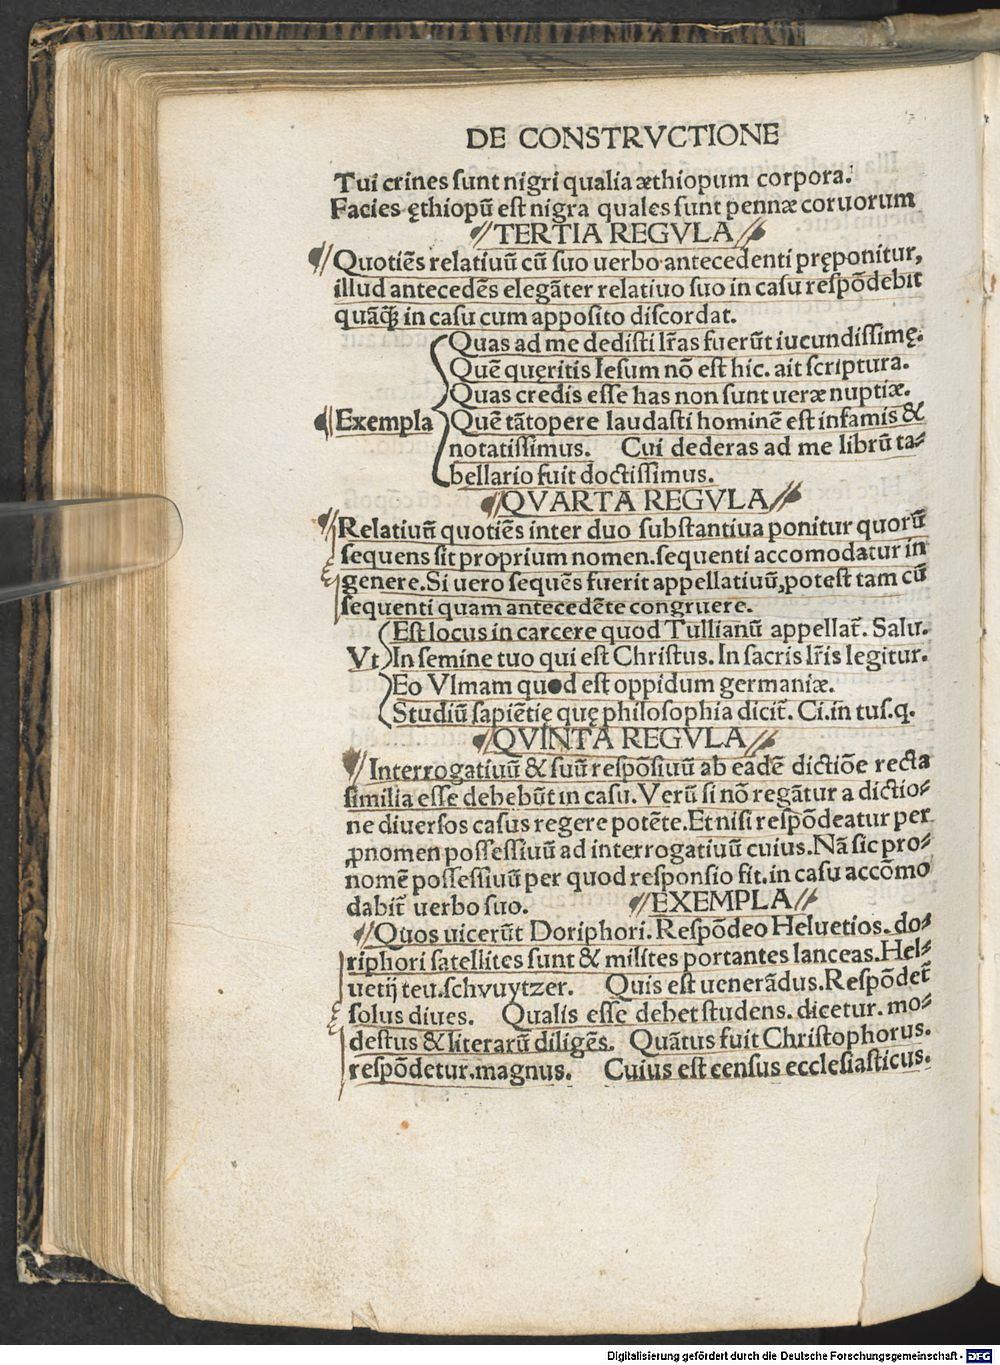 DE CONSTRVCTIONE
Tui crines sunt nigri qualia æthiopum corpora.
Facies ęthiopū est nigra quales sunt pennæ coruorum
TERTIA REGVLA
Quotiēs relatiuū cū suo uerbo antecedenti pręponitur,
illud antecedēs elegāter relatiuo suo in casu respōdebit
quāqꝫ in casu cum apposito discordat.
Quas ad me dedisti lr̄as fuerūt iucundissimę.
Quē quęritis Iesum nō est hic. ait scriptura.
Quas credis esse has non sunt ueræ nuptiæ.
Exempla Quē tātopere laudasti hominē est infamis &
notatissimus. Cui dederas ad me librū ta-
bellario fuit doctissimus.
QVARTA REGVLA
Relatiuū quotiēs inter duo substantiua ponitur quorū
sequens sit proprium nomen. sequenti accomodatur in
genere. Si uero sequēs fuerit appellatiuū, potest tam cū
sequenti quam antecedēte congruere.
Est locus in carcere quod Tullianū appellat̄. Salu.
Vt In semine tuo qui est Christus. In sacris lr̄is legitur.
Eo Vlmam quod est oppidum germaniæ.
Studiū sapiētię quę philosophia dicit̄. Ci. in tus. q.
QVINTA REGVLA
Interrogatiuū & suū respōsiuū ab eadē dictiōe recta
similia esse debebūt in casu. Verū si nō regātur a dictio-
ne diuersos casus regere potēte. Et nisi respōdeatur per
ꝓnomen possessiuū ad interrogatiuū cuius. Nā sic pro-
nomē possessiuū per quod responsio fit. in casu accōmo
dabit̄ uerbo suo. EXEMPLA
Quos uicerūt Doriphori. Respōdeo Heluetios. do-
riphori satellites sunt & milites portantes lanceas. Hel-
uetij teu. schvuytzer. Quis est uenerādus. Respōdet̄
solus diues. Qualis esse debet studens. dicetur. mo-
destus & literarū diligēs. Quātus fuit Christophorus.
respōdetur. magnus. Cuius est census ecclesiasticus.
Digitalisierung gefördert durch die Deutsche Forschungsgemeinschaft - DFG